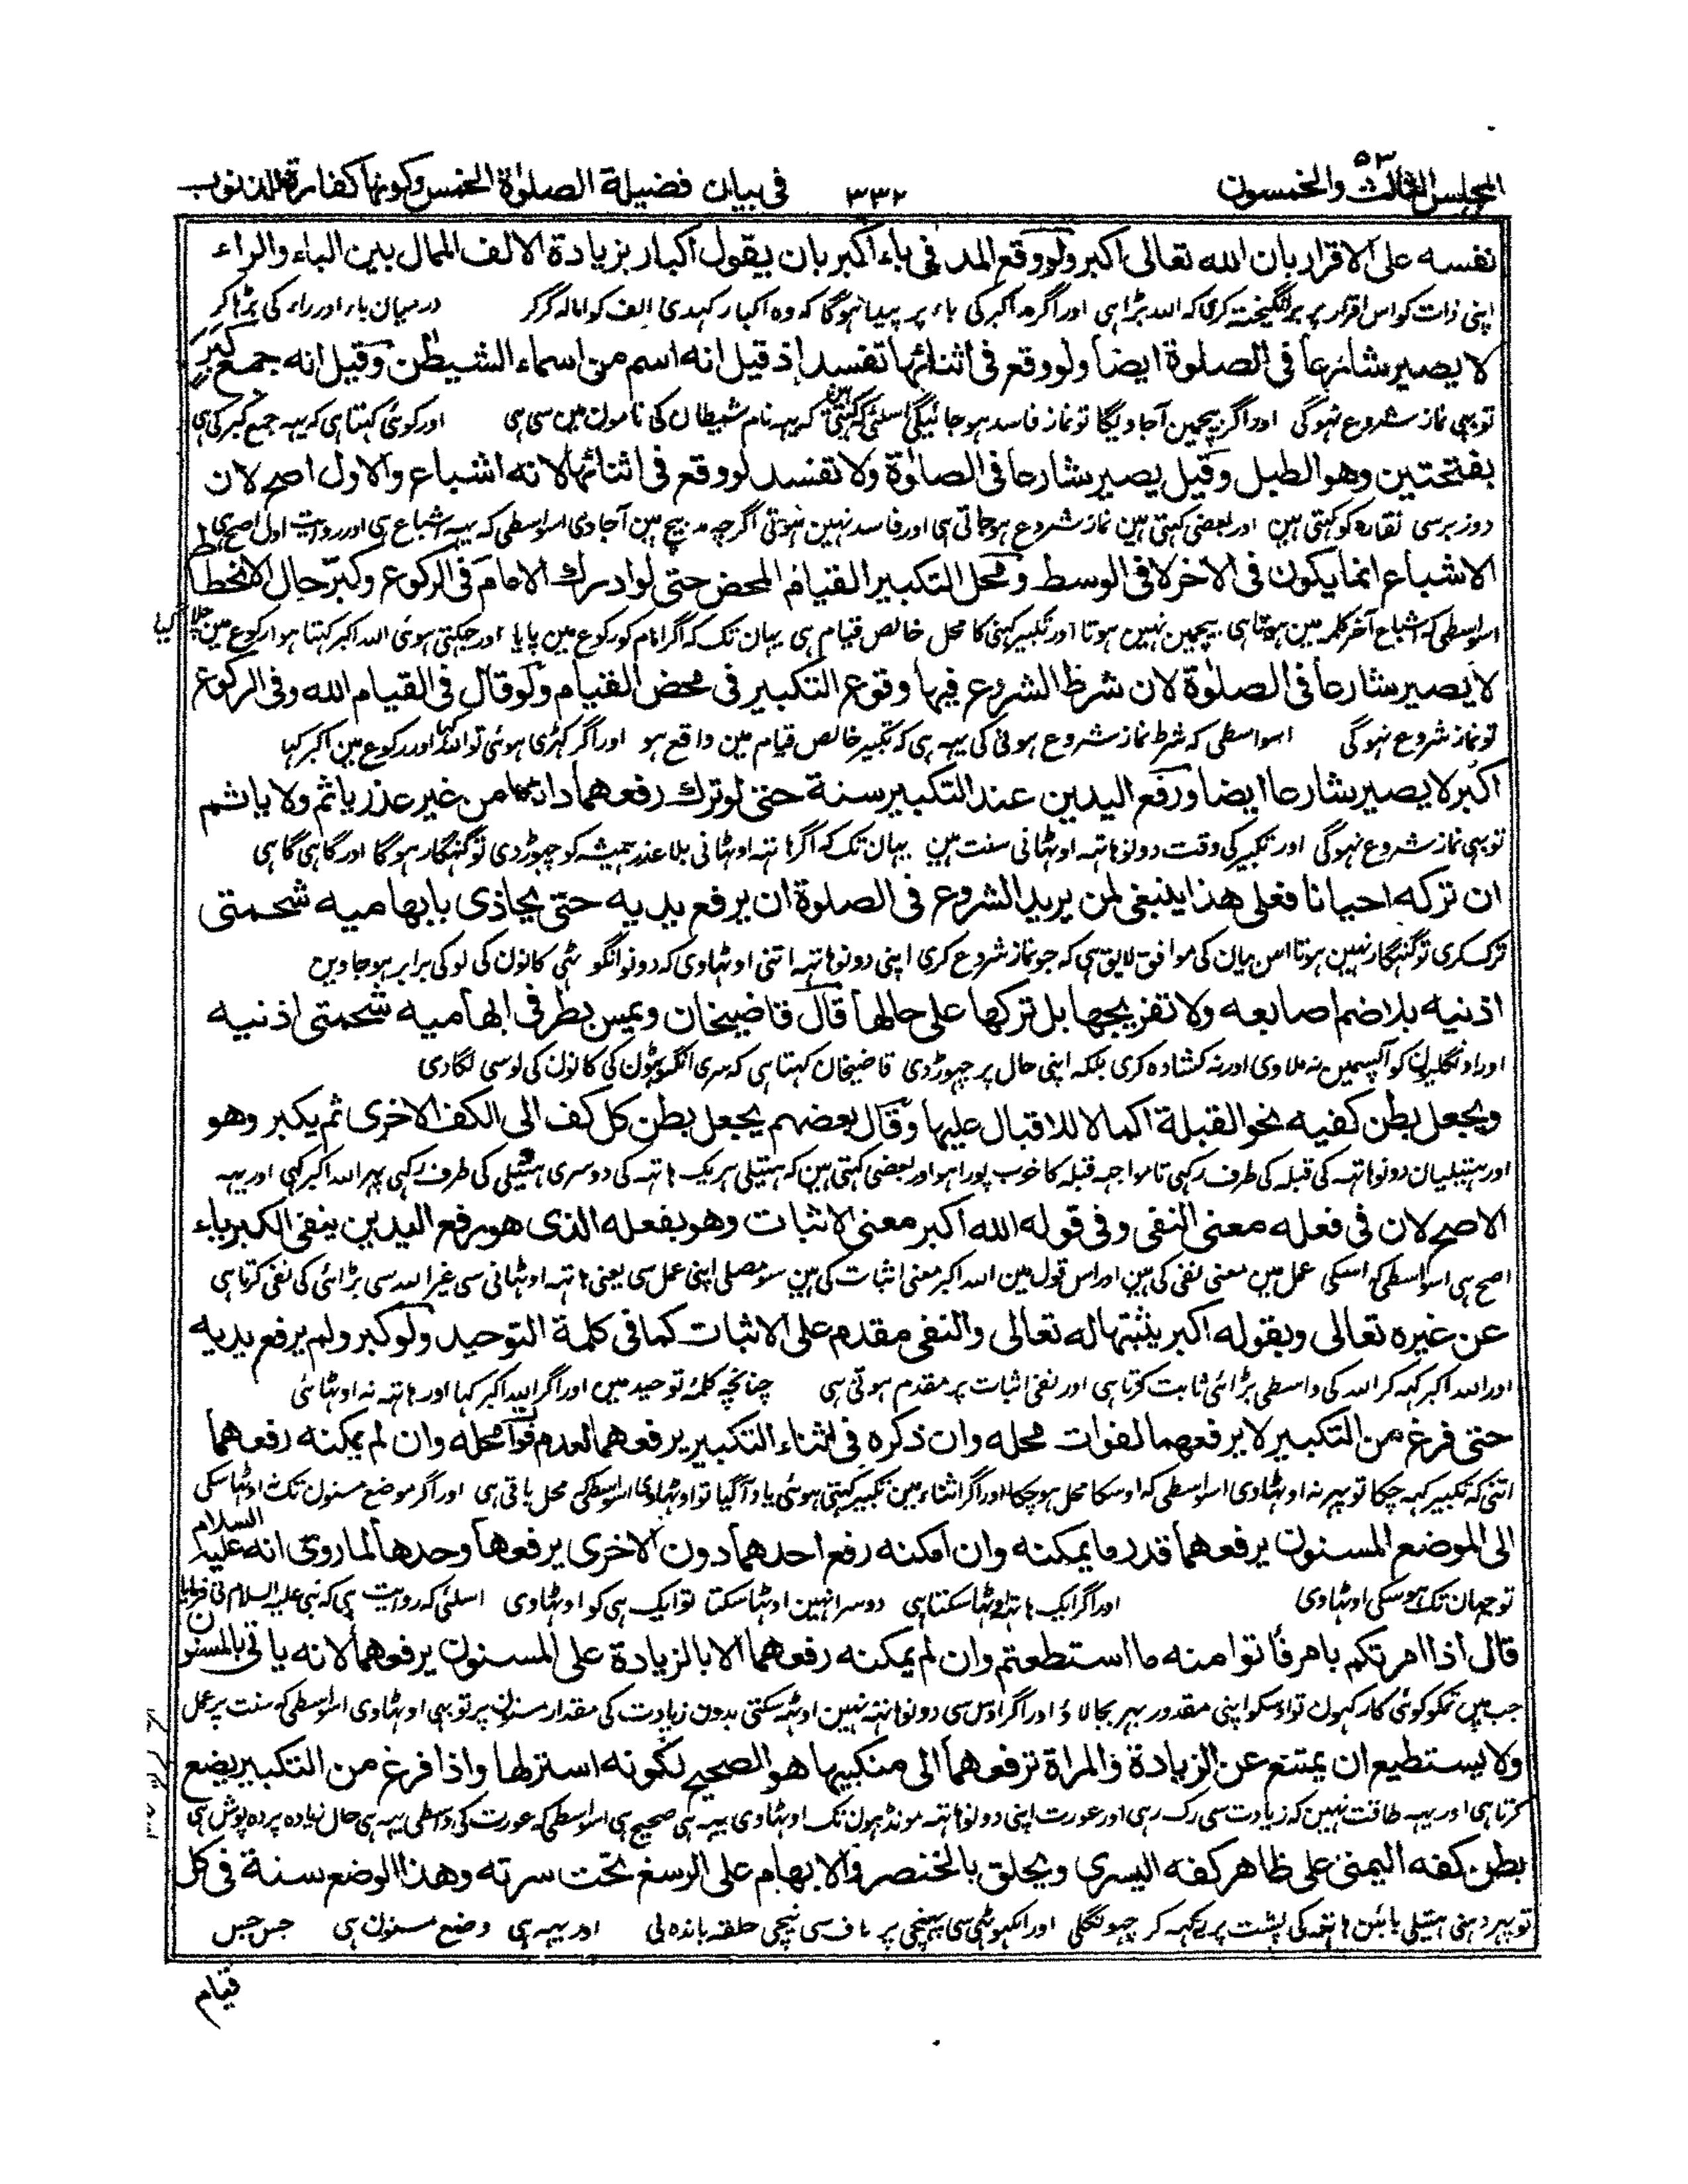 المجلس الثالث والخمسون ۵۳
۳۳۲
فی بیان فضیلة الصلوٰة الخمس وکونها کفارة للذنوب
نفسه علی الاقرار بان الله تعالی اکبر ولو وقع المد فی باء اکبر بان یقول اکبار بزیادة الالف الممال بین الباء والراء
اپنی ذات کو اس اقرار پر برانگیخته کری که الله بڑا هی اور اگر مد اکبر کی باء پر پیدا هوگا که وه اکبار کهدی الف کو اماله کرکر درمیان باء اور راء کی بڑها کر
لا یصیر شارعا فی الصلوة ایضا ولو وقع فی اثنائها تفسد اذ قیل انه اسم من اسماء الشیطٰن وقیل انه جمع کبر
توبهی نماز شروع نهوگی اور اگر بیچمین آجاویگا تو نماز فاسد هو جائیگی اسلئی که کهتی هین که یهه نام شیطان کی نامون مین سی هی اور کوئی کهتا هی که یهه جمع کبر کی هی
بفتحتین وهو الطبل وقیل یصیر شارعا فی الصلوٰة ولا تفسد لو وقع فی اثنائها لانه اشباع والاول اصح لان
دوزبرسی نقاره کو کهتی هین اور بعضی کهتی هین نماز شروع هو جاتی هی اور فاسد نهین هوتی اگرچه مد بیچ مین آجاوی اسواسطی که یهه اشباع هی اور روایت اول اصح هی
الاشباع انما یکون فی الاخر لا فی الوسط ومحل التکبیر القیام المحض حتی لو ادرك الامام فی الرکوع وکبر حال الانحطاط
اسواسطی که اشباع آخر کلمه مین هوتا هی بیچمین نهین هوتا اور تکبیر کهنی کا محل خالص قیام هی یهان تک که اگر امام کو رکوع مین پایا اور جهکتی هوئی الله اکبر کهتا هوا رکوع مین چلا گیا
لا یصیر شارعا فی الصلوٰة لان شرط الشروع فیها وقوع التکبیر فی محض القیام ولو قال فی القیام الله وفی الرکوع
تو نماز شروع نهوگی اسواسطی که شرط نماز شروع هونی کی یهه هی که تکبیر خالص قیام مین واقع هو اور اگر کهڑی هوئی تو الله کها اور رکوع مین اکبر کها
اکبر لا یصیر شارعا ایضا ورفع الیدین عند التکبیر سنة حتی لو ترك رفعهما دائما من غیر عذر یاثم ولا یاثم
توبهی نماز شروع نهوگی اور تکبیر کی وقت دونو هاتهه اوٹهانی سنت هین یهان تک که اگر هاتهه اوٹهانی بلا عذر همیشه کو چهوڑ دی تو گنهگار هوگا اور گاهی گاهی
ان ترکه احیانا فعلی هذا ینبغی لمن یرید الشروع فی الصلوة ان یرفع یدیه حتی یحاذی بابهامیه شحمتی
ترک کری تو گنهگار نهین هوتا اس بیان کی موافق لایق هی که جو نماز شروع کری اپنی دونو هاتهه اتنی اوٹهاوی که دونو انگوٹهی کانون کی لو کی برابر هو جاوین
اذنیه بلا ضم اصابعه ولا تفریجها بل ترکها علی حالها قال قاضیخان ویمس بطرفی ابهامیه شحمتی اذنیه
اور اونگلیون کو آپسمین نه ملاوی اور نه کشاده کری بلکه اپنی حال پر چهوڑ دی قاضیخان کهتا هی که سری انگوٹهون کی کانون کی لوسی لگادی
ویجعل بطن کفیه نحو القبلة اکمالا للاقبال علیها وقال بعضهم یجعل بطن کل کف الی الکف الاخری ثم یکبر وهو
اور هتیلیان دونو هاتهه کی قبله کی طرف رکهی تا مواجهه قبله کا خوب پورا هو اور بعضی کهتی هین که هتیلی هر یک هاتهه کی دوسری هتیلی کی طرف رکهی پهر الله اکبر کهی اور یهه
الاصح لان فی فعله معنی النفی وفی قوله الله اکبر معنی الاثبات وهو بفعله الذی هو رفع الیدین ینفی الکبریاء
اصح هی اسواسطی که اسکی عمل مین معنی نفی کی هین اور اس قول مین الله اکبر معنی اثبات کی هین سو مصلی اپنی عمل سی یعنی هاتهه اوٹهانی سی غیر الله سی بڑائی کی نفی کرتا هی
عن غیره تعالی وبقوله اکبر یثبتها له تعالی والنفی مقدم علی الاثبات کما فی کلمة التوحید ولو کبر ولم یرفع یدیه
اور الله اکبر کهه کر الله کی واسطی بڑائی ثابت کرتا هی اور نفی اثبات پر مقدم هوتی هی چنانچه کلمۂ توحید مین اور اگر الله اکبر کها اور هاتهه نه اوٹهائی
حتی فرغ من التکبیر لا یرفعهما لفوات محله وان ذکره فی اثناء التکبیر یرفعهما لعدم فوات محله وان لم یمکنه رفعهما
اتنی که تکبیر کهه چکا تو پهر نه اوٹهاوی اسواسطی که اوسکا محل هو چکا اور اگر اثناء مین تکبیر کهتی هوئی یاد آگیا تو اوٹهاوی اسواسطی که محل باقی هی اور اگر موضع مسنون تک اوٹهاسکی
الی الموضع المسنون یرفعهما قدر ما یمکنه وان امکنه رفع احدهما دون الاخری یرفعها وحدها لما روی انه علیه السلام
تو جهان تک هوسکی اوٹهاوی اور اگر ایک هاتهه اوٹها سکتا هی دوسرا نهین اوٹها سکتا تو ایک هی کو اوٹهاوی اسلئی که روایت هی که نبی علیه السلام نی فرمایا
قال اذا امرتکم بامر فأتوا منه ما استطعتم وان لم یمکنه رفعهما الا بالزیادة علی المسنون یرفعهما لانه یاتی بالمسنون
جب مین تمکو کوئی کار کهون تو اوسکو اپنی مقدور بهر بجالاؤ اور اگر اوس سی دونو هاتهه نهین اوٹهه سکتی بدون زیادت کی مقدار مسنون پر توبهی اوٹهاوی اسواسطی که سنت پر عمل
ولا یستطیع ان یمتنع عن الزیادة والمراة ترفعهما الی منکبیها هو الصحیح لکونه استر لها واذا فرغ من التکبیر یضع
کرتا هی اور یهه طاقت نهین که زیادت سی رک رهی اور عورت اپنی دونو هاتهه مونڈهون تک اوٹهاوی یهه هی صحیح هی اسواسطی که عورت کی واسطی یهه هی حال زیاده پرده پوش هی
بطن کفه الیمنی علی ظاهر کفه الیسری ویحلق بالخنصر والابهام علی الرسغ تحت سرته وهذا الوضع سنة فی کل
تو پهر دهنی هتیلی بائین هاتهه کی پشت پر رکهه کر چهونگلی اور انگوٹهی سی پهنچی پر ناف سی نیچی حلقه بانده لی اور یهه هی وضع مسنون هی جس جس
قیام